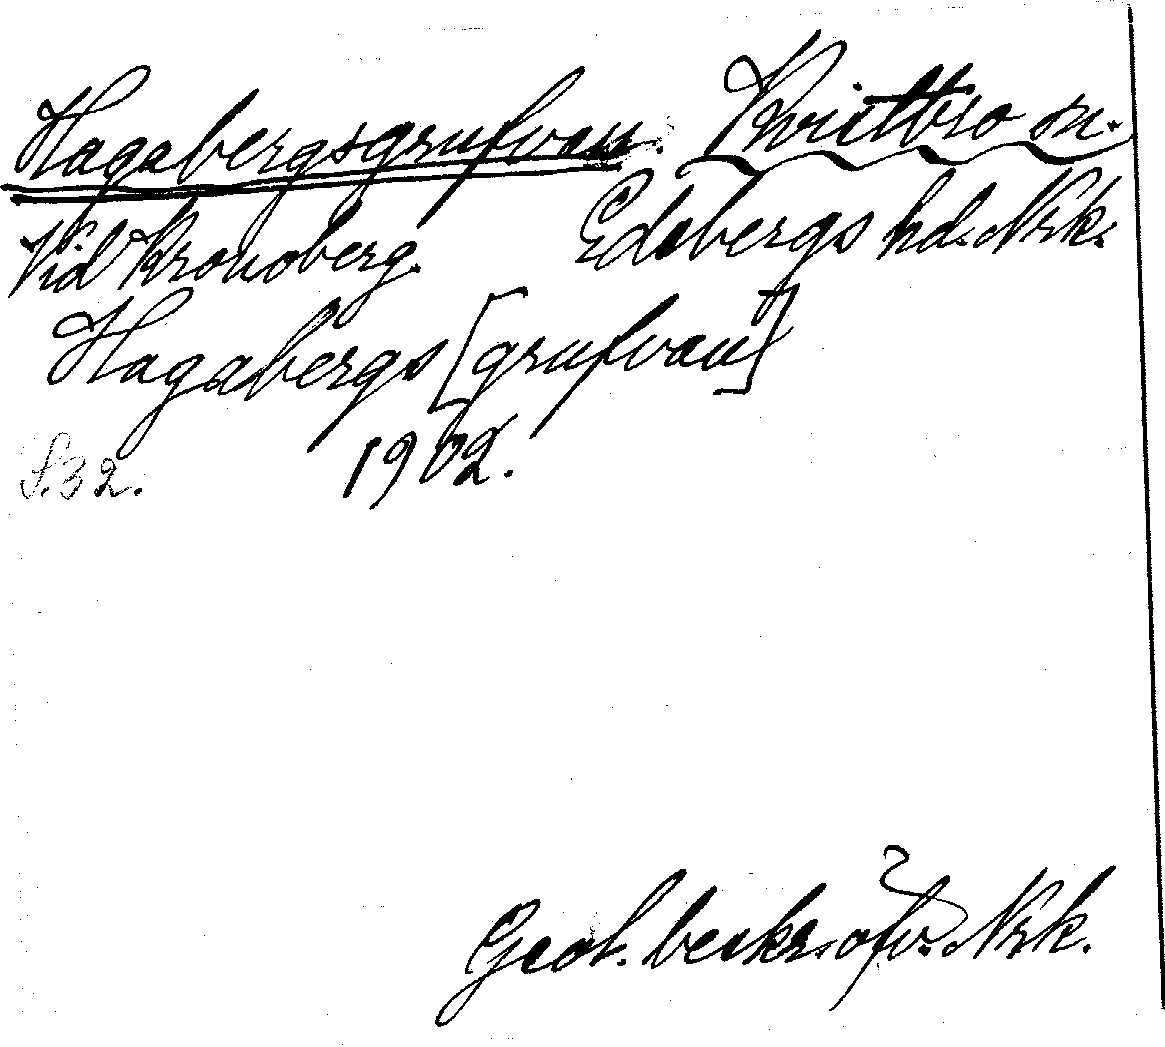 Hagabergsgrufvan. Knistbro sn.
Vid Kronoberg. Edsbergs hd. Nrk.
Hagabergs [grufvan]
S. 32. 1902.
Geol. beskr. öfv. Nrk.